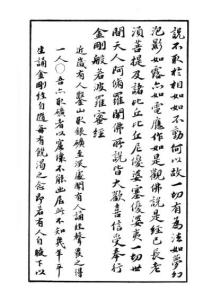 說不取於相如如不動何以故一切有為法如夢幻
泡影如露亦如電應作如是觀佛說是經已長老
須菩提及諸比丘比丘尼優婆塞優婆夷一切世
間天人阿修羅聞佛所說皆大歡喜信受奉行
金剛般若波羅蜜經
近歲有人鑿山取銀礦至深處聞有人誦經聲發之得
一人云吾亦取礦者以窟壞不能出居此不知幾年平
生誦金剛經自隨每有饑渴之念即若有人自腋下以